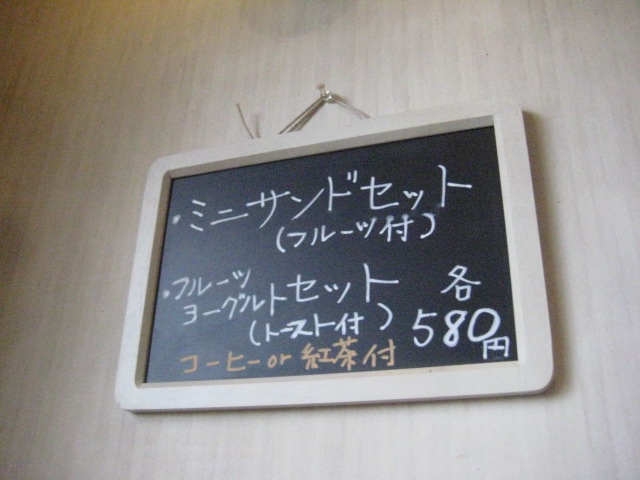 ・ミニサンドセット
(フルーツ付)
・フルーツ
ヨーグルトセット 各
(トースト付) 580円
コーヒーor紅茶付